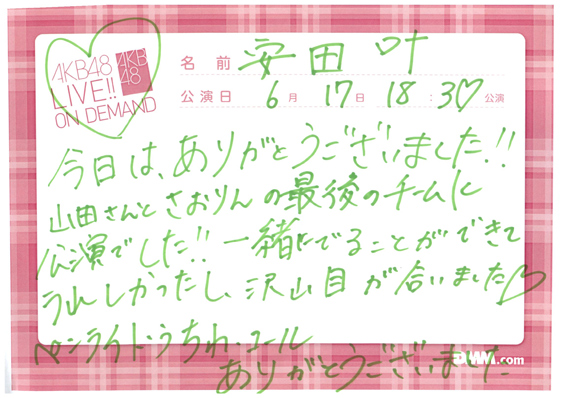 AKB48
LIVE!!
ON DEMAND
AKB
48
名前 安田 叶
公演日 6月 17日 18:30公演
今日は、ありがとうございました!!
山田さんとさおりんの最後のチームK
公演でした!! 一緒にでることができて
うれしかったし、沢山目が合いました♡
ペンライト・うちわ・コール
ありがとうございました
DMM.com